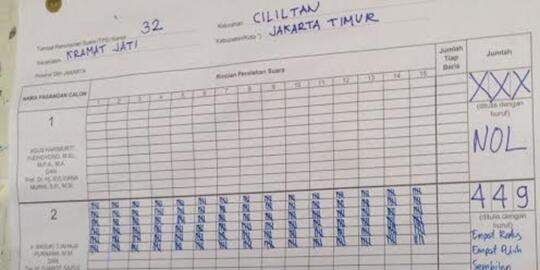 Tempat Pemungutan Suara (TPS) Nomor 32
Kelurahan CILILITAN
Kecamatan KRAMAT JATI
Kabupaten/Kota *) JAKARTA TIMUR
Provinsi DKI JAKARTA
NAMA PASANGAN CALON
Rincian Perolehan Suara
Jumlah Tiap Baris
Jumlah
1 2 3 4 5 6 7 8 9 10 11 12 13 14 15
XXX
(ditulis dengan huruf)
NOL
1
AGUS HARIMURTI
YUDHOYONO, M.Sc,
M.P.A, M.A
DAN
Prof. Dr. Hj. SYLVIANA
MURNI, S.H., M.Si
2
449
(ditulis dengan huruf)
Empat Ratus
Empat Puluh
Sembilan
Ir. BASUKI TJAHAJA
PURNAMA, M.M
DAN